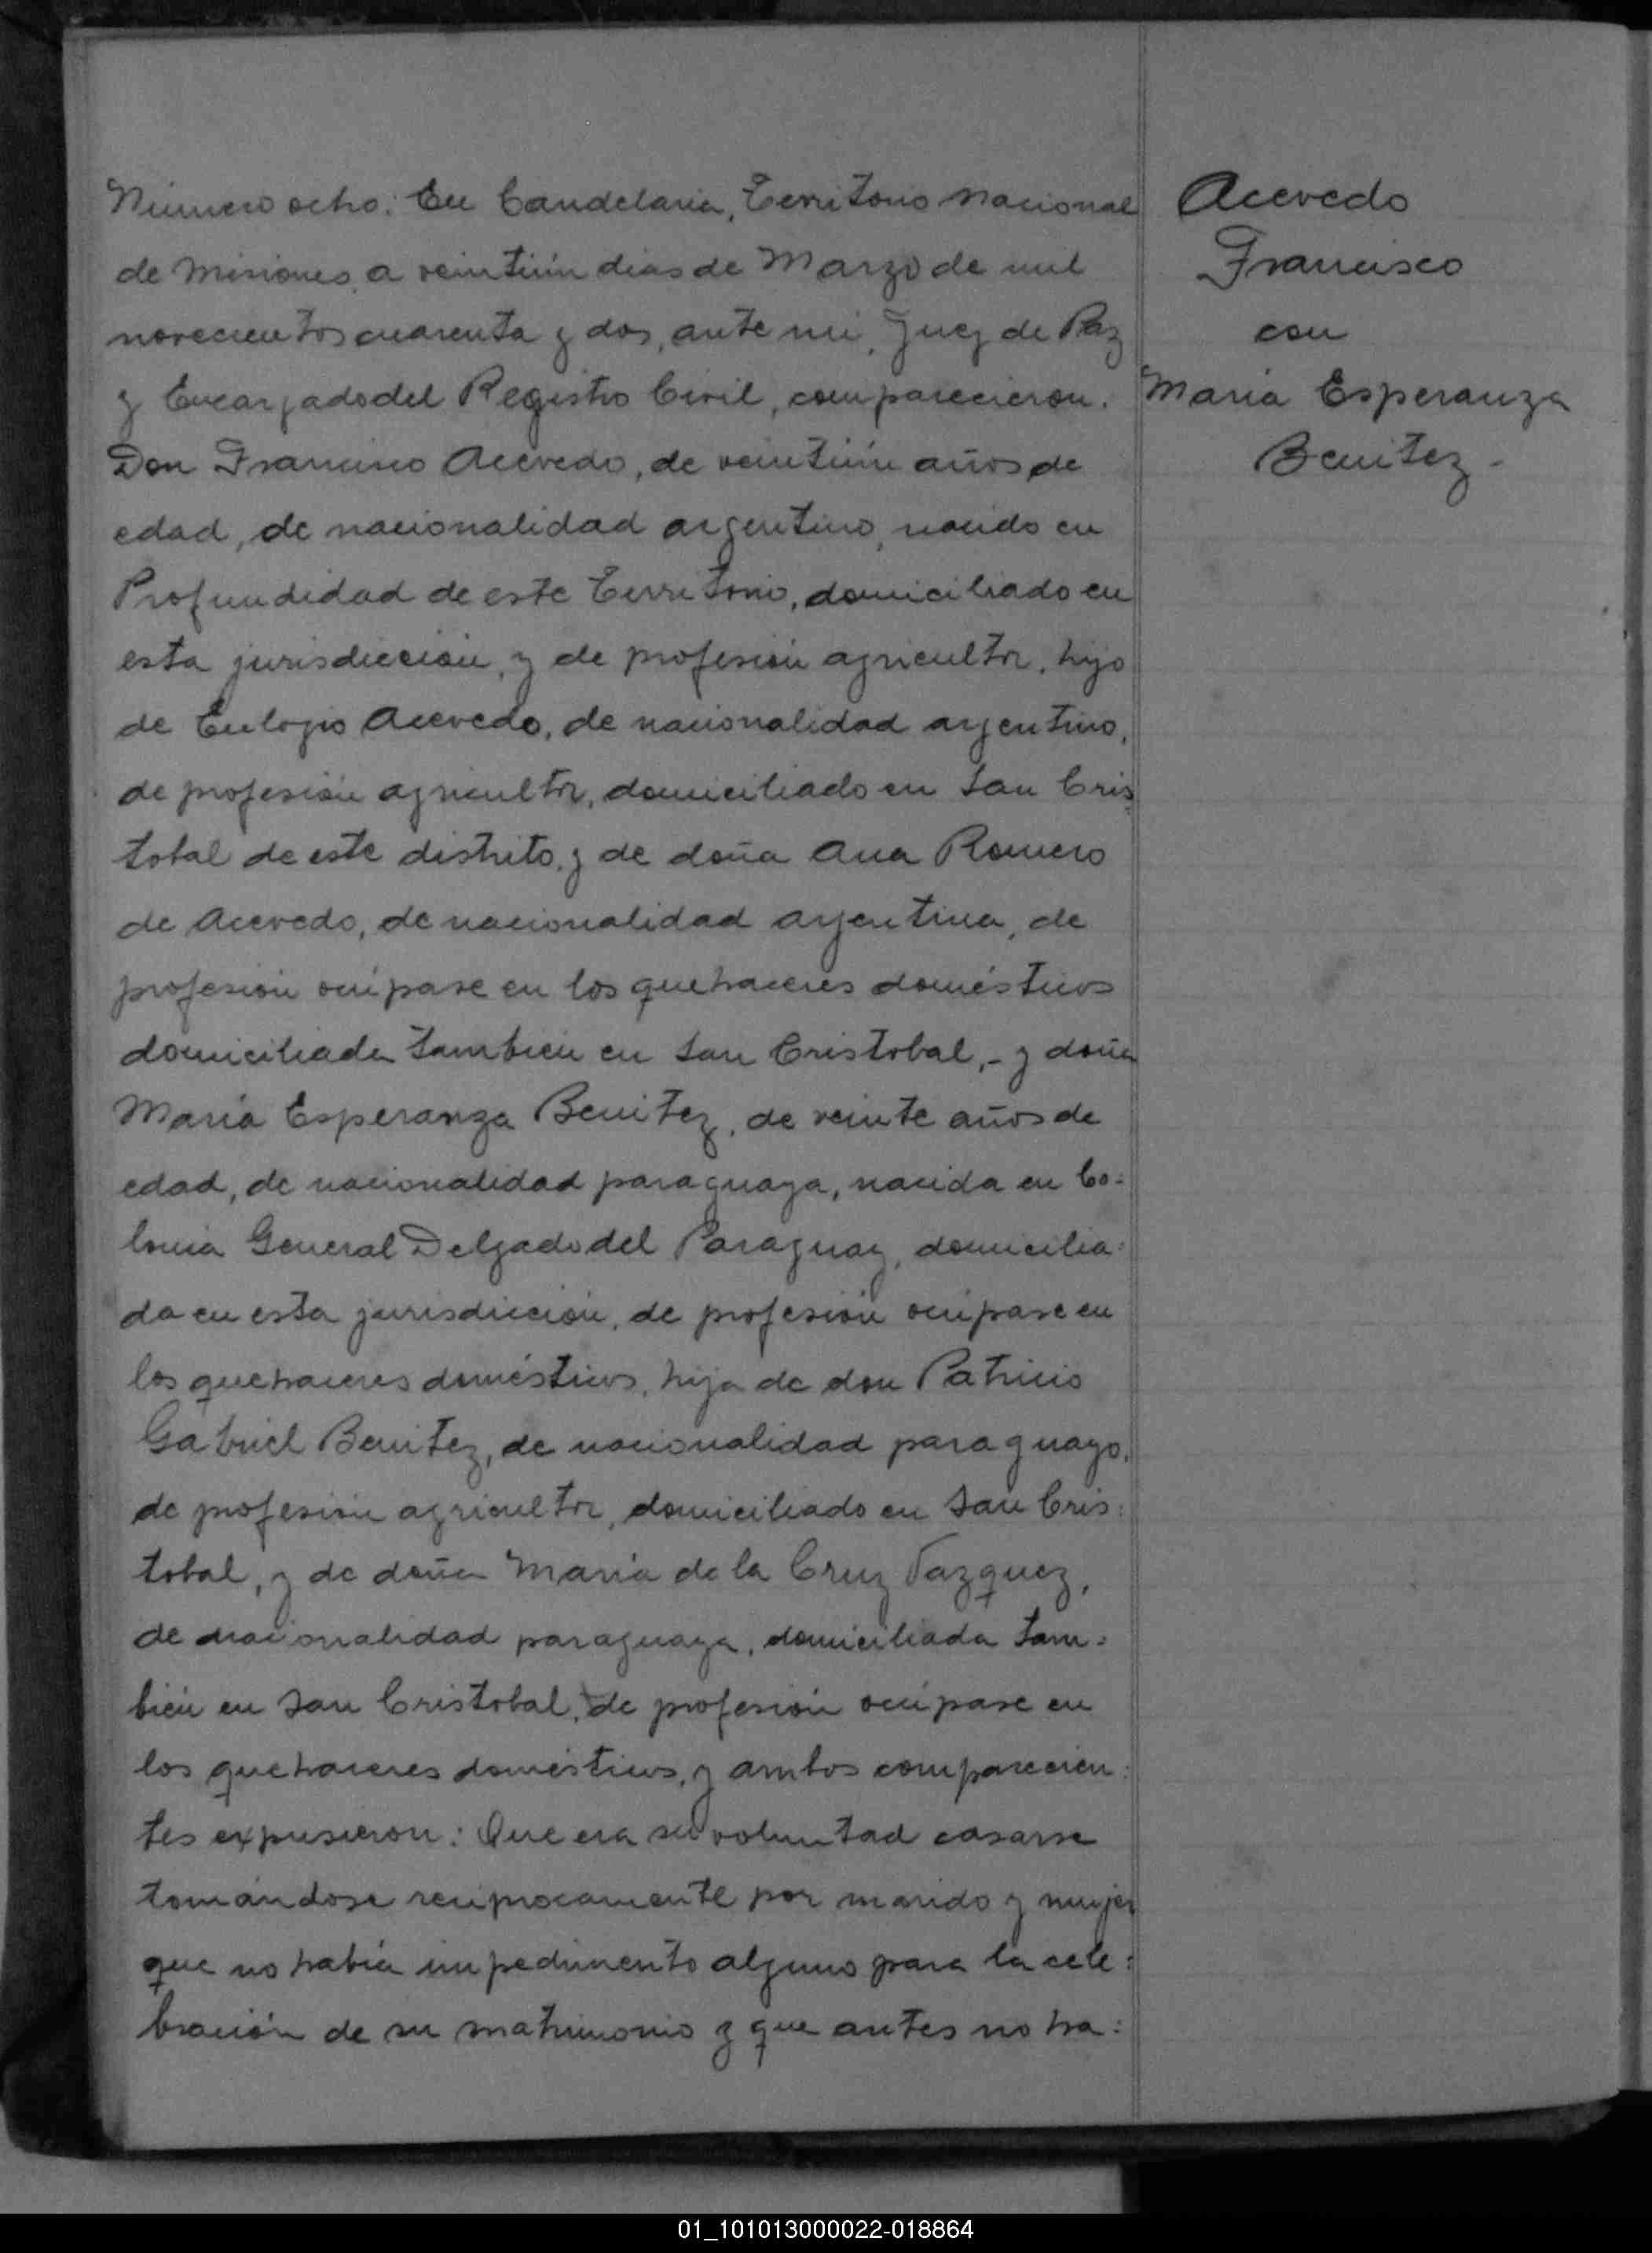 Número ocho: En Candelaria, Territorio Nacional
de Misiones, a veintiún dias de Marzo de mil
novecientos cuarenta y dos, ante mi, Juez de Paz
y Encargado del Registro Civil, comparecieron:
Don Francisco Acevedo, de veintiún años de
edad, de nacionalidad argentino, nacido en
Profundidad de este Territorio, domiciliado en
esta jurisdicción, y de profesión agricultor, hijo
de Eulogio Acevedo, de nacionalidad argentino,
de profesión agricultor, domiciliado en San Cris
tobal de este distrito, y de doña Ana Romero
de Acevedo, de nacionalidad argentina, de
profesión ocúpase en los quehaceres domésticos
domiciliada tambien en San Cristobal,- y doña
María Esperanza Benitez, de veinte años de
edad, de nacionalidad paraguaya, nacida en Co=
lonia General Delgado del Paraguay, domicilia=
da en esta jurisdicción, de profesión ocúpase en
los quehaceres domésticos, hija de don Patricio
Gabriel Benitez, de nacionalidad paraguayo,
de profesión agricultor, domiciliado en San Cris=
tobal, y de doña María de la Cruz Vazquez,
de nacionalidad paraguaya, domiciliada tam=
bién en San Cristobal, de profesión ocúpase en
los quehaceres domésticos, y ambos comparecien=
tes expusieron: Que era su voluntad casarse
tomándose recíprocamente por marido y mujer
que no había impedimento alguno para la cele=
bración de su matrimonio y que antes no ha=
Acevedo
Francisco
con
María Esperanza
Benitez -
01_101013000022-018864